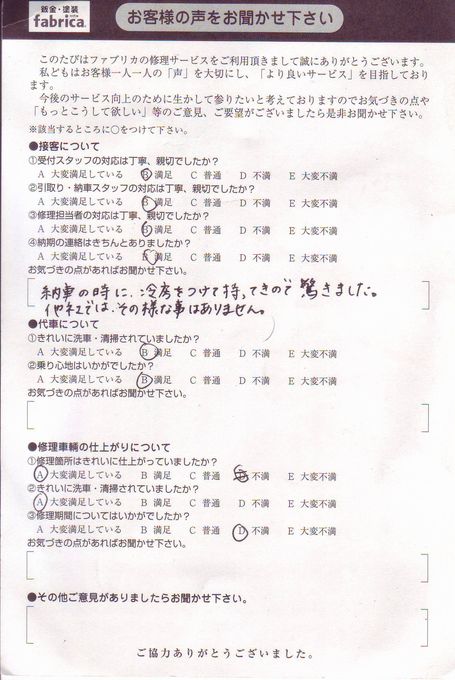 鈑金・塗装
fabrica.
お客様の声をお聞かせ下さい
このたびはファブリカの修理サービスをご利用頂きまして誠にありがとうございます。
私どもはお客様一人一人の「声」を大切にし、「より良いサービス」を目指しており
ます。
今後のサービス向上のために生かして参りたいと考えておりますのでお気づきの点や
「もっとこうして欲しい」等のご意見、ご要望がございましたら是非お聞かせ下さい。
※該当するところに○をつけて下さい。
●接客について
①受付スタッフの対応は丁寧、親切でしたか?
A 大変満足している B 満足 C 普通 D 不満 E 大変不満
②引取り・納車スタッフの対応は丁寧、親切でしたか?
A 大変満足している B 満足 C 普通 D 不満 E 大変不満
③修理担当者の対応は丁寧、親切でしたか?
A 大変満足している B 満足 C 普通 D 不満 E 大変不満
④納期の連絡はきちんとありましたか?
A 大変満足している B 満足 C 普通 D 不満 E 大変不満
お気づきの点があればお聞かせ下さい。
納車の時に、冷房をつけて持ってきので驚きました。
他社では、その様な事はありません。
●代車について
①きれいに洗車・清掃されていましたか?
A 大変満足している B 満足 C 普通 D 不満 E 大変不満
②乗り心地はいかがでしたか?
A 大変満足している B 満足 C 普通 D 不満 E 大変不満
お気づきの点があればお聞かせ下さい。
●修理車輌の仕上がりについて
①修理箇所はきれいに仕上がっていましたか?
A 大変満足している B 満足 C 普通 D 不満 E 大変不満
②きれいに洗車・清掃されていましたか?
A 大変満足している B 満足 C 普通 D 不満 E 大変不満
③修理期間についてはいかがでしたか?
A 大変満足している B 満足 C 普通 D 不満 E 大変不満
お気づきの点があればお聞かせ下さい。
●その他ご意見がありましたらお聞かせ下さい。
ご協力ありがとうございました。